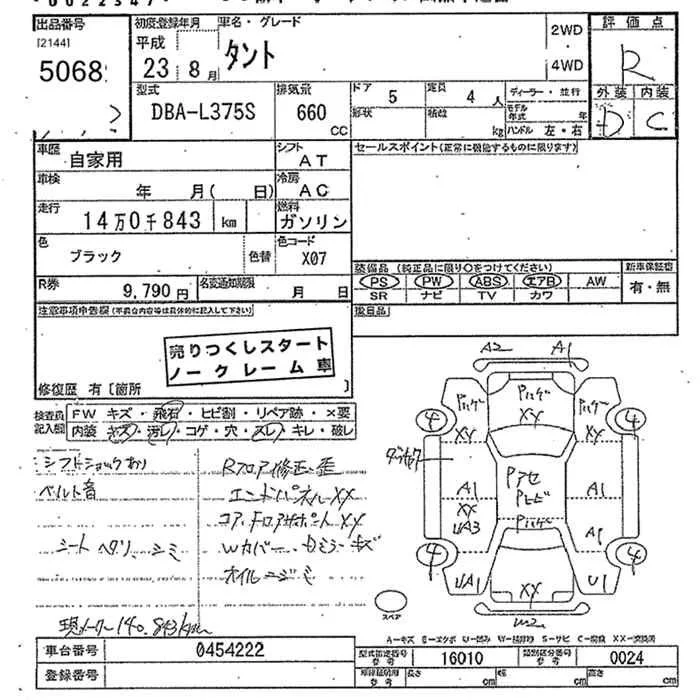 出品番号 初度登録年月 車名・グレード 2WD 評価点
[2144] 平成 タント R
5068 23年 8月 4WD 外装 内装
型式 排気量 ドア 定員 ディーラー・並行 D C
DBA-L375S 660 5 4人 モデル年式 年
CC 形状 積載 kg ハンドル 左・右
車歴 自家用 シフト AT セールスポイント(正常に機能するものに限ります)
車検 年 月( 日) 冷房 AC
走行 14万0千843 km 燃料 ガソリン
色 ブラック 色替 色コード X07
装備品 (純正品に限り○をつけてください) 新車保証書
R券 9,790円 名変通知期限 月 日 PS PW ABS エアB AW 有・無
SR ナビ TV カワ
注意事項申告欄(不具合内容等は具体的に記入して下さい) 後日品
売りつくしスタート
ノークレーム車
修復歴 有 [箇所 ]
検査員記入欄 FW キズ・飛石・ヒビ割・リペア跡・×要
内装 キズ・汚レ・コゲ・穴・スレ・キレ・破レ
シフトショックあり Rフロア修正歪
ベルト音 エンドパネルXX
コア.F.ロアサポートXX
シート ヘタリ、シミ
オイルニジミ
現メーター140.843km
A2 A1
パンク゛ー XY XY XY
4 4
A1 Pアセ A1
XX Pレビ
UA3 A1
4 4
UA1 XX U1
W2
スペア
A-キズ E-エクボ U-凹み W-補修跡 S-サビ C-腐蝕 XX-交換済
車台番号 0454222 型式指定番号 参考 16010 類別区分番号 参考 0024
登録番号 長さ cm 幅 cm 高さ cm